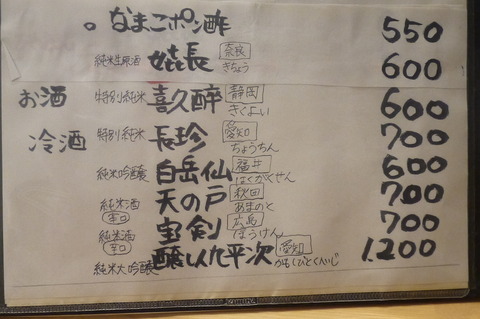 。なまこポン酢 550
純米生原酒 嬉長 奈良 きちょう 600
お酒 特別純米 喜久醉 静岡 きくよい 600
冷酒 特別純米 長珍 愛知 ちょうちん 700
純米吟醸 白岳仙 福井 はくがくせん 600
純米酒 辛口 天の戸 秋田 あまのと 700
純米酒 辛口 宝剣 広島 ほうけん 700
純米大吟醸 醸し人九平次 愛知 かもしびとくへいじ 1,200